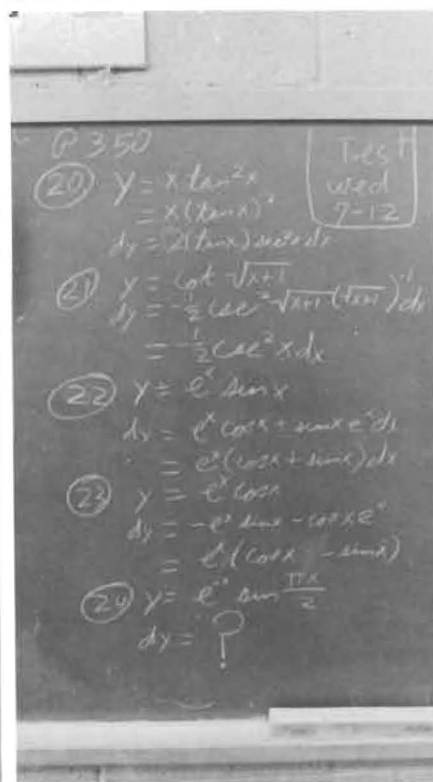 P 350
Test
wed
7-12
20 y = x tan²x
= x(tanx)²
dy = 2(tanx) sec²x dx
21 y = cot √x+1
dy = -½ csc² √x+1 (√x+1)⁻¹ dx
= -½ csc² x dx
22 y = eˣ sin x
dy = eˣ cosx + sinx eˣ dx
= eˣ(cosx + sinx) dx
23 y = eˣ cosx
dy = -eˣ sinx - cosx eˣ
= (cosx - sinx)
24 y = sin πx/2
dy = ?